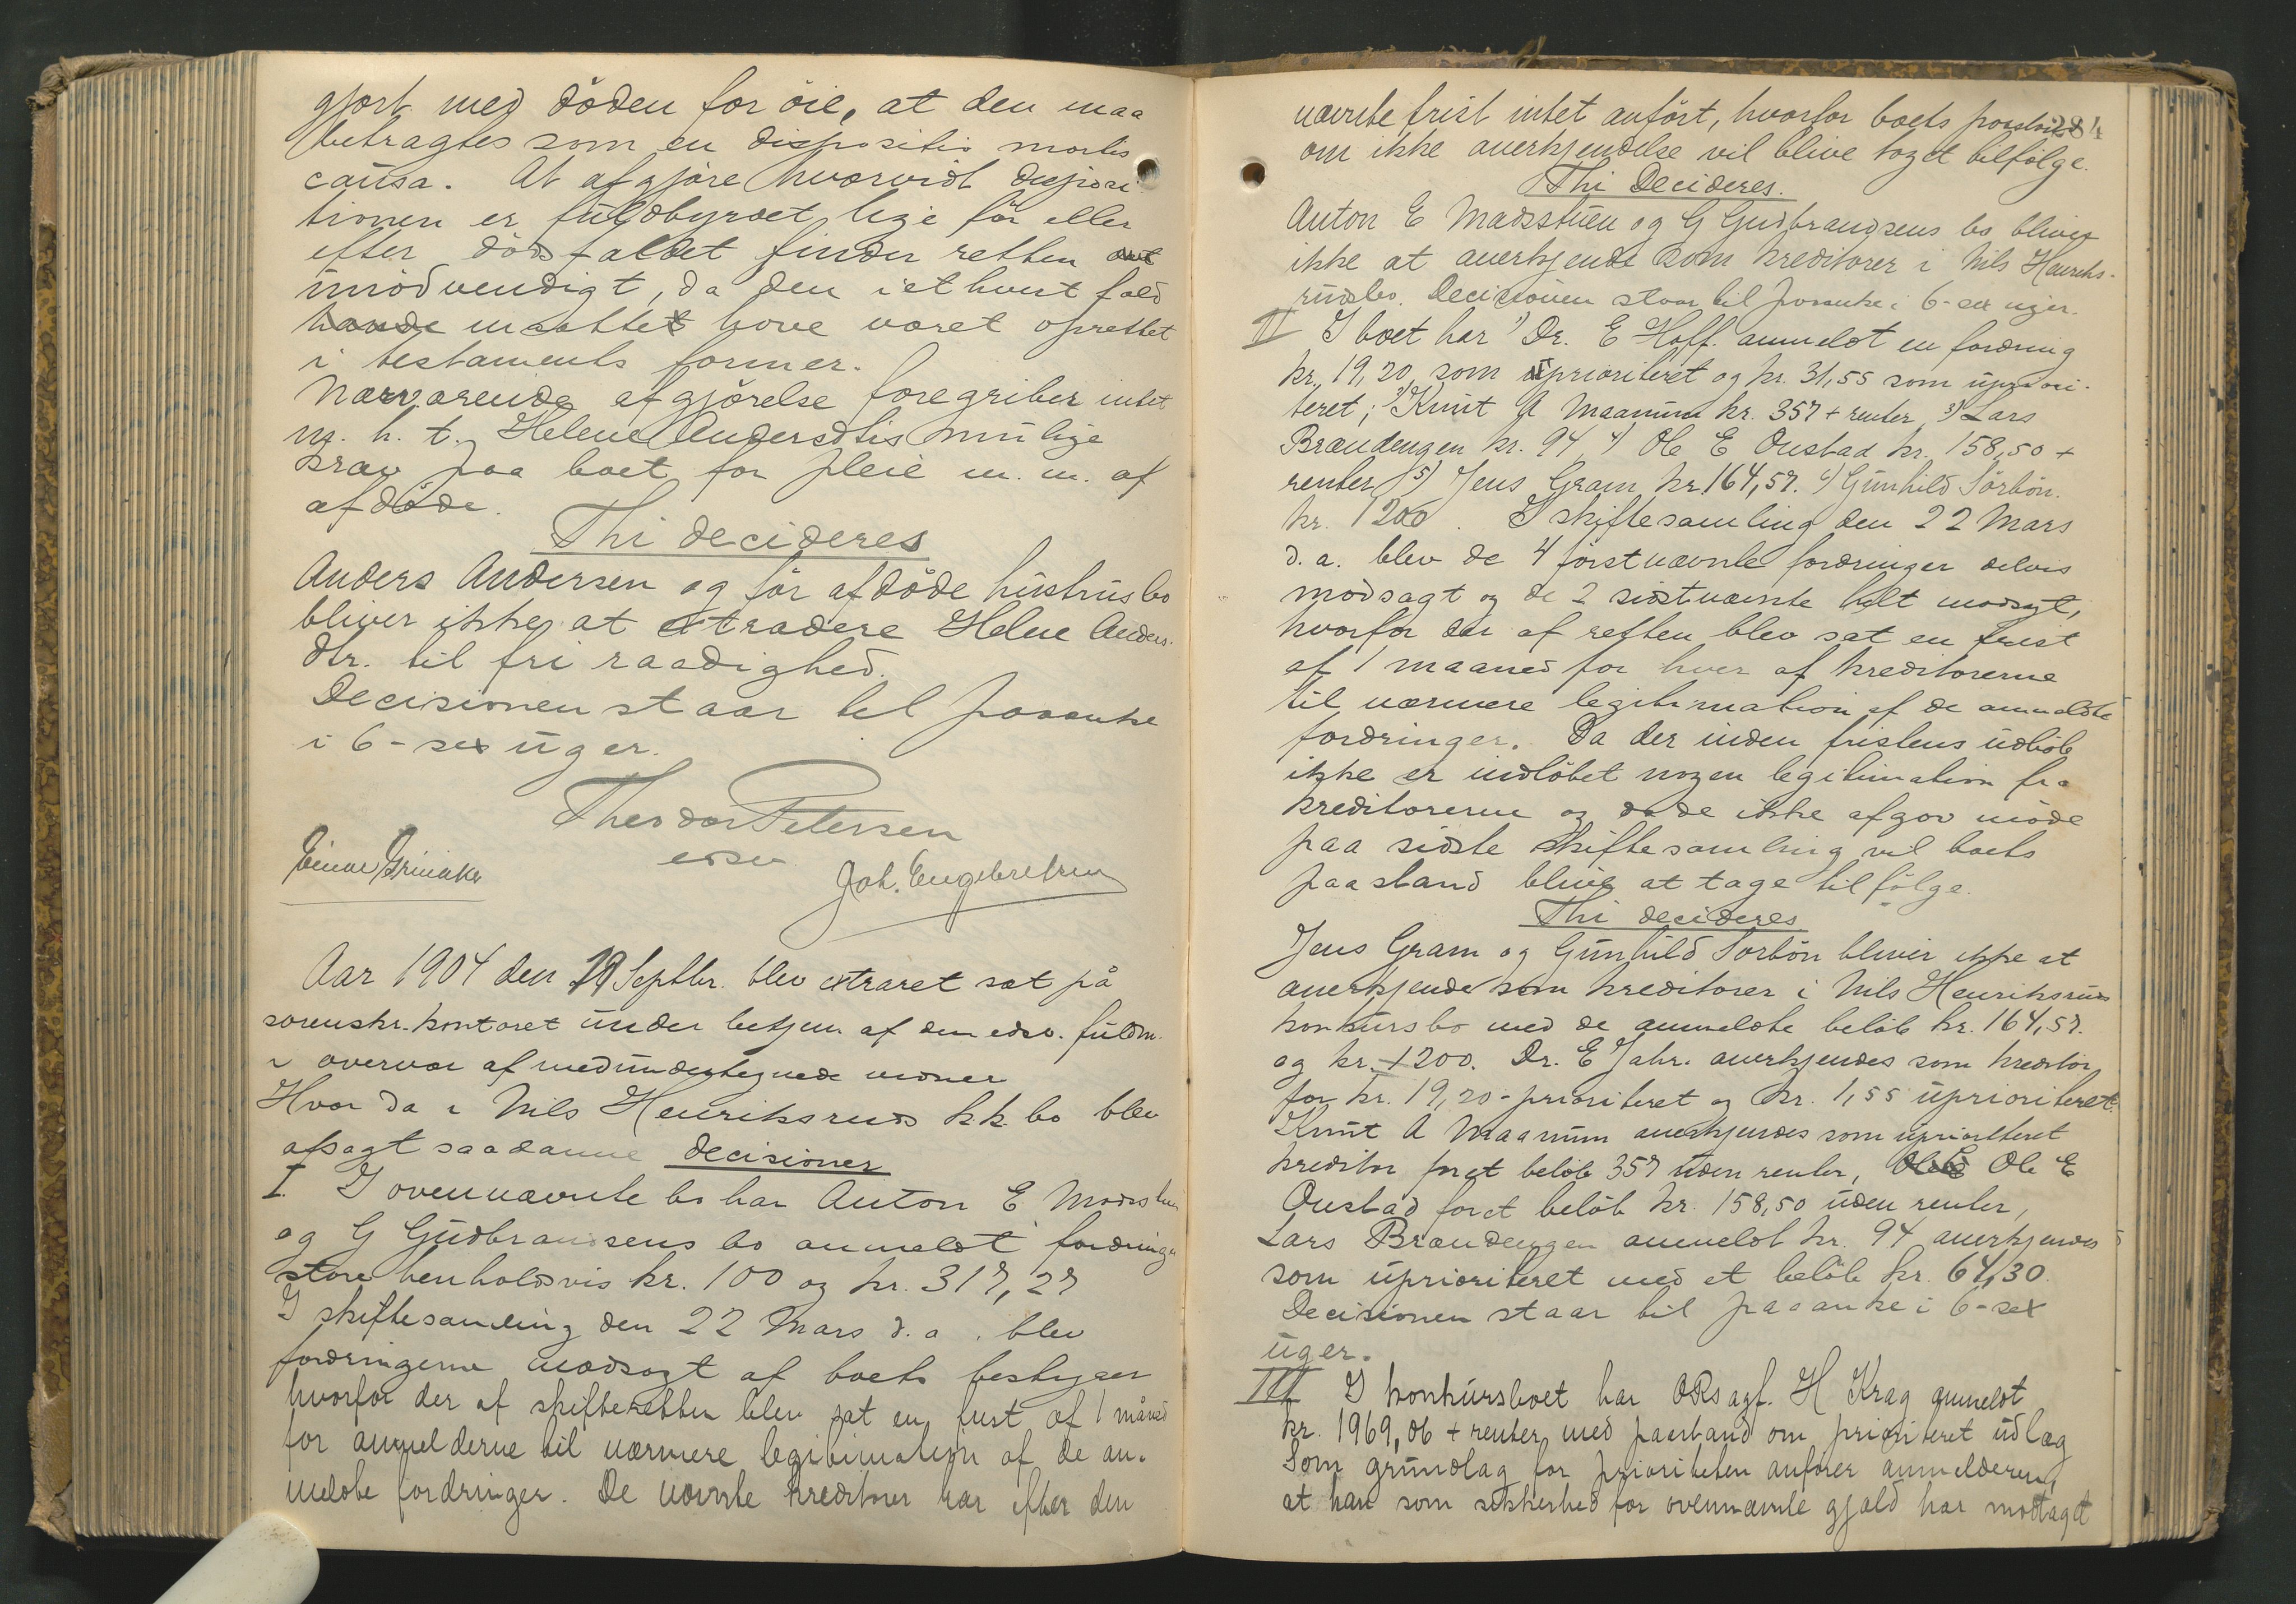 gjort med döden for öie, at den maa
betragtes som en dispositio mortis
causa. At afgjöre hvorvidt disposi
tionen er fuldbyrdet lige för eller
efter dödsfaldet finder retten
unödvendigt, da den i et hvert fald
havde maattet have været oprettet
i testaments former.
Nærværende afgjörelse foregriber intet
m. h. t. Helene Andersdtrs mulige
krav paa boet for pleie m. m. af
afdöde.
Thi decideres
Anders Andersen og før afdöde hustrus bo
bliver ikke at extradere Helene Anders.
dtr. til fri raadighed.
Decisionen staar til paaanke
i 6-sex uger.
Theodor Petersen
edsv
Einar Grinaker
Joh. Engebretsen
Aar 1904 den 29 Septbr. blev extraret sat på
sorenskr.kontoret under betjen af den edsv. fuldm.
i overvær af medundertegnede vidner
Hvor da i Nils Henriksruds kk. bo blev
afsagt saadanne decisioner
I. I ovennævnte bo har Anton E Madsstuen
og G Gudbrandsens bo anmeldt fordringer
store henholdsvis kr. 100 og kr. 317,27
I skiftesamling den 22 Mars d. a. blev
fordringerne modsagt af boets bestyrer
hvorfor der af skifteretten blev sat en frist af 1 måned
for anmelderne til nærmere legitimation af de an-
meldte fordringer. De nævnte kreditorer har efter den
284
nævnte frist intet anfört, hvorfor boets paastand
om ikke anerkjendelse vil blive taget tilfölge.
Thi Decideres.
Anton E Madsstuen og G Gudbrandsens bo bliver
ikke at anerkjende som kreditorer i Nils Henriks-
ruds bo. Decisionen staar til paaanke i 6-sex uger.
II I boet har 1) Dr. E Hoff. anmeldt en fordring
kr. 19,20 som prioriteret og kr. 31,55 som upriori-
teret; 2) Knut A Maanum kr. 357 + renter, 3) Lars
Brændengen kr. 94 4) Ole E Onstad kr. 158,50 +
renter 5) Jens Gram kr 164,57. 6) Gunhild Sörbön.
kr. 1200. I skiftesamling den 22 Mars
d. a. blev de 4 förstnævnte fordringer delvis
modsagt og de 2 sidstnævnte helt modsagt,
hvorfor der af retten blev sat en frist
af 1 maaned for hver af kreditorerne
til nærmere legitimation af de anmeldte
fordringer. Da der inden fristens udlöb
ikke er indlöbet nogen legitimation fra
kreditorerne og da de ikke afgav möde
paa sidste skiftesamling vil boets
paastand blive at tage tilfölge.
Thi decideres
Jens Gram og Gunhild Sorbön bliver ikke at
anerkjende som kreditorer i Nils Henriksruds
konkursbo med de anmeldte belöb kr. 164,57.
og kr. 1200. Dr. E Jahr. anerkjendes som kreditor
for kr. 19,20 - prioriteret og kr. 1,55 uprioriteret.
Knut A Maanum anerkjendes som uprioriteret
kreditor for et belöb 357 uden renter, Ole E
Onstad for et belöb kr. 158,50 uden renter,
Lars Brændengen anmeldt kr. 94 anerkjendes
som uprioriteret med et belöb kr. 64,30.
Decisionen staar til paaanke i 6-sex
uger.
III I konkursboet har ORsagf. H Krag anmeldt
kr. 1969,06 + renter med paastand om prioriteret udlæg
Som grundlag for prioriteten anfører anmelderen,
at han som sikkerhed for ovennævnte gjæld har modtaget